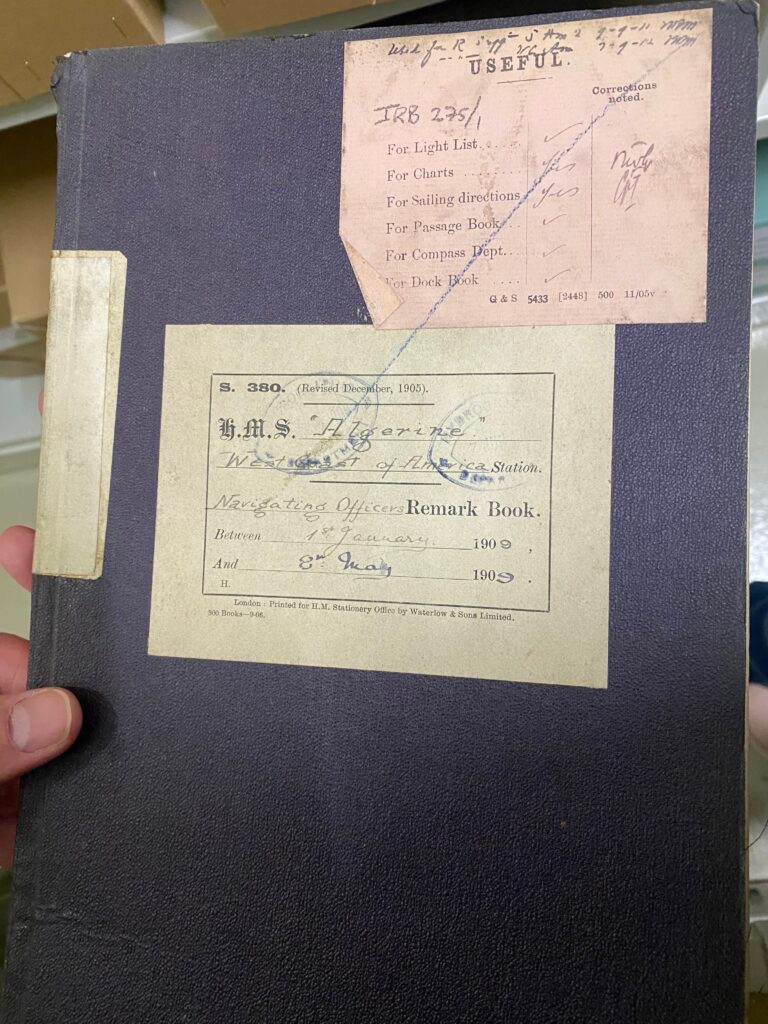 Used for R 5 Am 9-9-11
Am 7-9-12
USEFUL.
Corrections
noted.
IRB 275/1
For Light List ✓
For Charts Yes
For Sailing directions Yes
For Passage Book ✓
For Compass Dept. ✓
For Dock Book ✓
G & S 5433 [2448] 500 11/05
S. 380. (Revised December, 1905).
H.M.S. "Algerine"
West Coast of America Station.
Navigating Officers Remark Book.
Between 1st January. 1909,
And 8th May 1909.
H.
London : Printed for H.M. Stationery Office by Waterlow & Sons Limited.
300 Books—9-06.